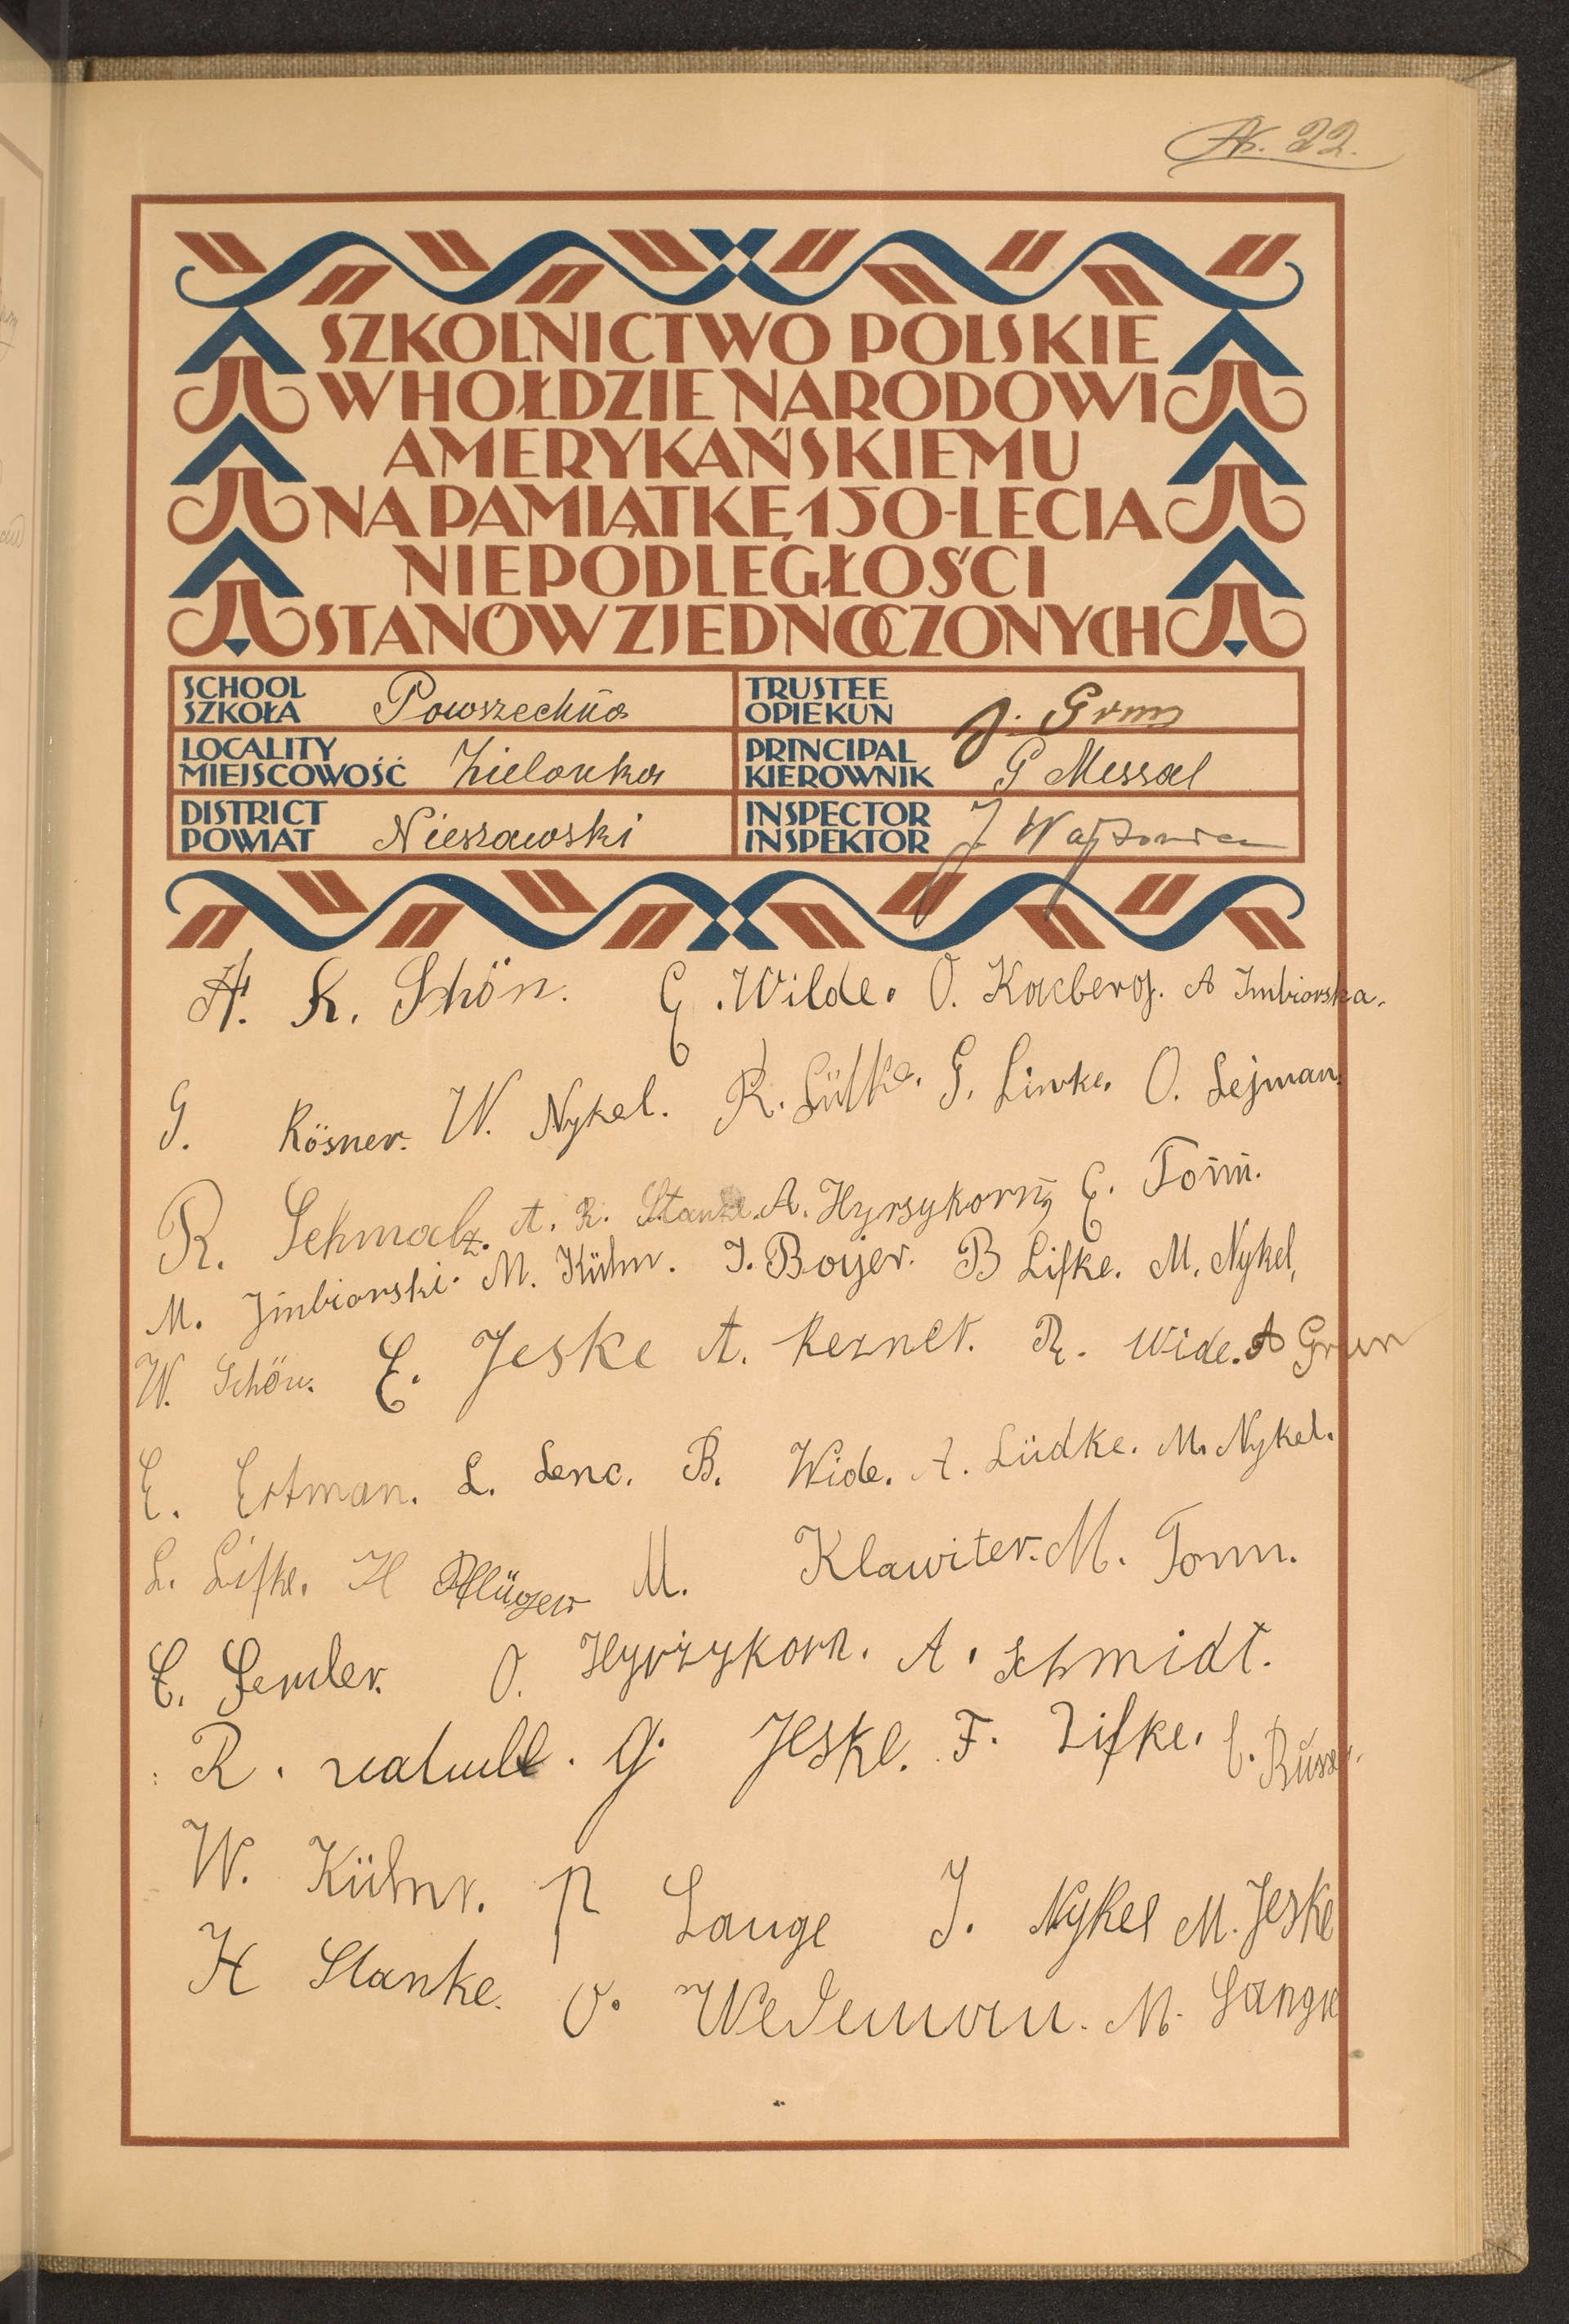 22.
SZKOLNICTWO POLSKIE
W HOŁDZIE NARODOWI
AMERYKAŃSKIEMU
NA PAMIĄTKĘ 150-LECIA
NIEPODLEGŁOŚCI
STANÓW ZJEDNOCZONYCH
SCHOOL
SZKOŁA Powszechna
TRUSTEE
OPIEKUN J. Grun
LOCALITY
MIEJSCOWOŚĆ Zielonka
PRINCIPAL
KIEROWNIK G Messal
DISTRICT
POWIAT Nieszawski
INSPECTOR
INSPEKTOR J.
A. K. Schön. E. Wilde. O. Kacberg. A Imbiorska.
G. Rösner. W. Nykel. R. Lütke. G. Linke. O. Lejman.
R. Schmalz. A. R. Stanke. A. Hyrsykorn, E. Tonn.
M. Jmbiorski. M. Kühn. J. Boyer. B Lifke. M. Nykel,
W. Schön. E. Jeske A. Rezner. R. Wide. A Grun
E. Ertman. L. Lenc. B. Wide. A. Lüdke. M. Nykel.
L. Lifke. H Pflüger M. Klawiter. M. Tonn.
E. Semler. O. Hyrżykorn. A. Schmidt.
R. G. Jeske. F. Lifke.
W. Kühn. Lange J. Nykel M. Jeske
H Stanke. O. Wedeman. M. Lange